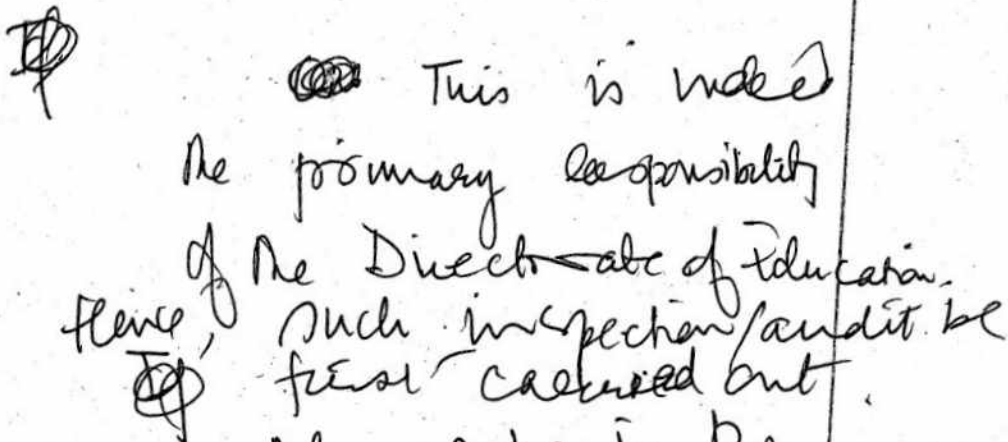 This is indeed
the primary responsibility
of the Directorate of Education.
Hence, such inspection/audit be
first carried out.